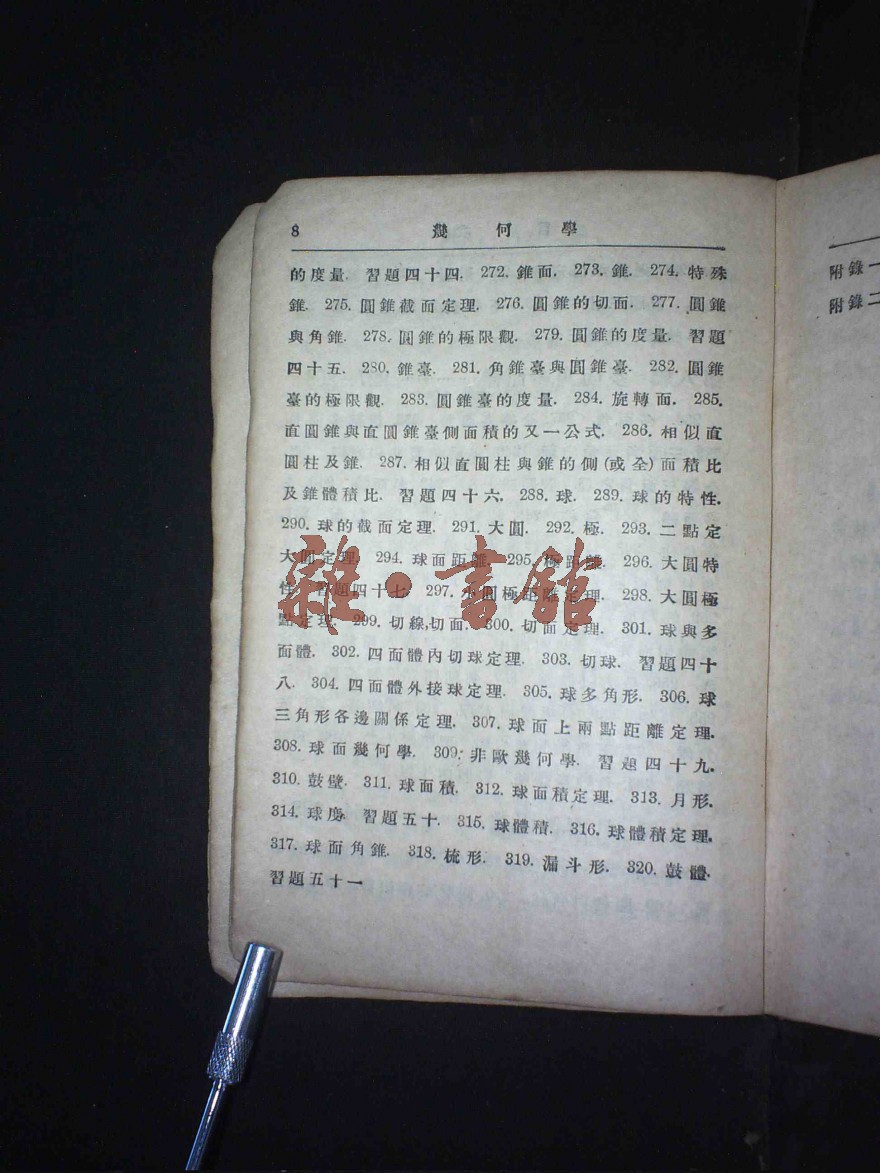 8 幾何學
的度量. 習題四十四. 272. 錐面. 273. 錐. 274. 特殊
錐. 275. 圓錐截面定理. 276. 圓錐的切面. 277. 圓錐
與角錐. 278. 圓錐的極限觀. 279. 圓錐的度量. 習題
四十五. 280. 錐臺. 281. 角錐臺與圓錐臺. 282. 圓錐
臺的極限觀. 283. 圓錐臺的度量. 284. 旋轉面. 285.
直圓錐與直圓錐臺側面積的又一公式. 286. 相似直
圓柱及錐. 287. 相似直圓柱與錐的側(或全)面積比
及錐體積比. 習題四十六. 288. 球. 289. 球的特性.
290. 球的截面定理. 291. 大圓. 292. 極. 293. 二點定
大圓定理. 294. 球面距離. 295. 極距離. 296. 大圓特
性. 習題四十七. 297. 小圓極距離定理. 298. 大圓極
點定理. 299. 切線,切面. 300. 切面定理. 301. 球與多
面體. 302. 四面體內切球定理. 303. 切球. 習題四十
八. 304. 四面體外接球定理. 305. 球多角形. 306. 球
三角形各邊關係定理. 307. 球面上兩點距離定理.
308. 球面幾何學. 309. 非歐幾何學. 習題四十九.
310. 鼓壁. 311. 球面積. 312. 球面積定理. 313. 月形.
314. 球度. 習題五十. 315. 球體積. 316. 球體積定理.
317. 球面角錐. 318. 梳形. 319. 漏斗形. 320. 鼓體.
習題五十一
雜·書館
附錄一
附錄二